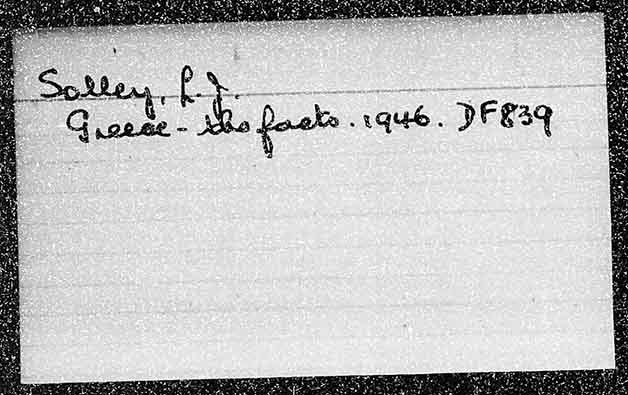 Solley, L.J.
Greece - the facts. 1946. DF839